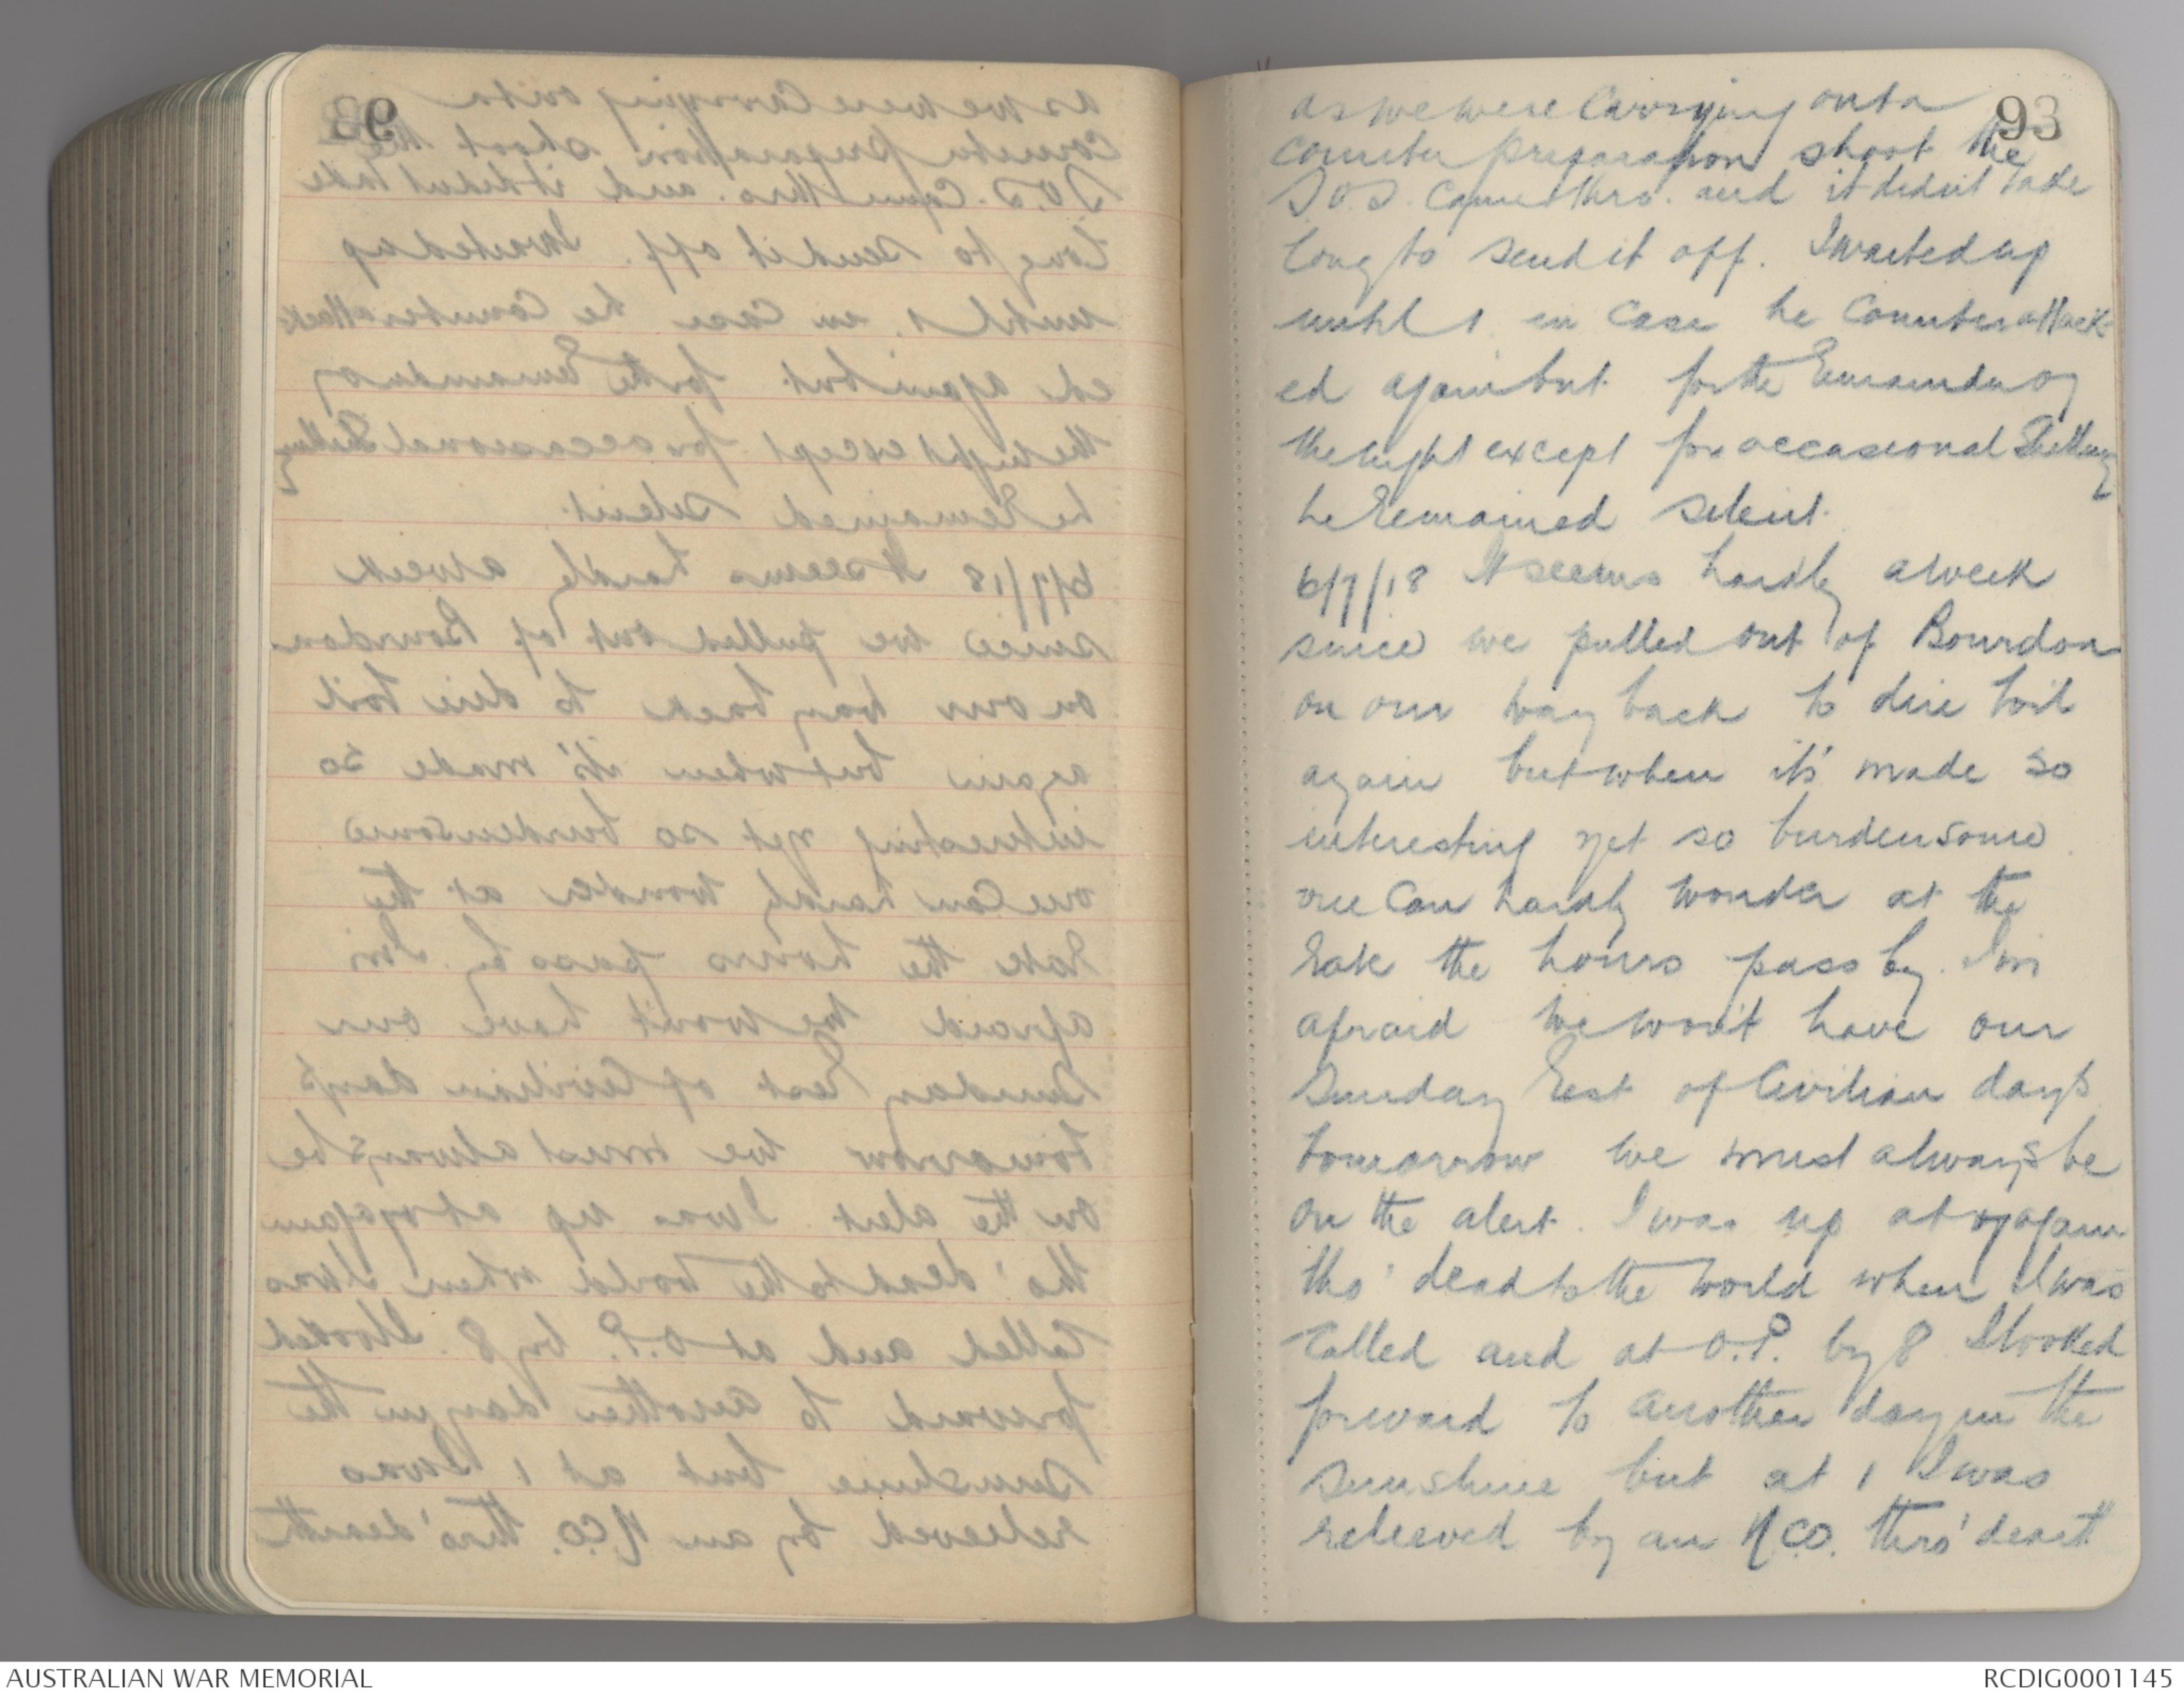 93
as we were Carrying out a
counter preparation shoot the
S.O.S. came thro. and it didnt take
long to send it off. I waited up
until 1 in case he Counterattack-
ed again but for the Remainder of
the night except for occasional Shelling
he Remained silent.
6/7/18 It seems hardly a week
since we pulled out of Bourdon
on our way back to dire toil
again but when it's made so
interesting yet so burdensome
one Can hardly wonder at the
Rate the hours pass by. I'm
afraid we won't have our
Sunday Rest of Civilian days
tomorrow we must always be
on the alert. I was up at 7 again
tho' dead to the world when I was
Called and at O.P. by 8. I looked
forward to another day in the
sunshine but at 1 I was
relieved by an N.C.O. thro' dearth
AUSTRALIAN WAR MEMORIAL
RCDIG0001145